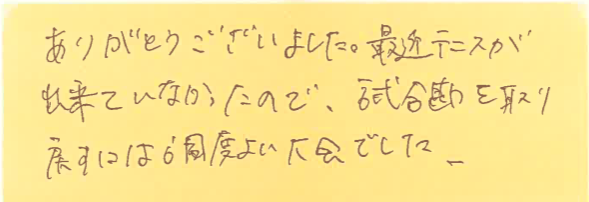 ありがとうございました。最近テニスが
出来ていなかったので、試合勘を取り
戻すには調度よい大会でした